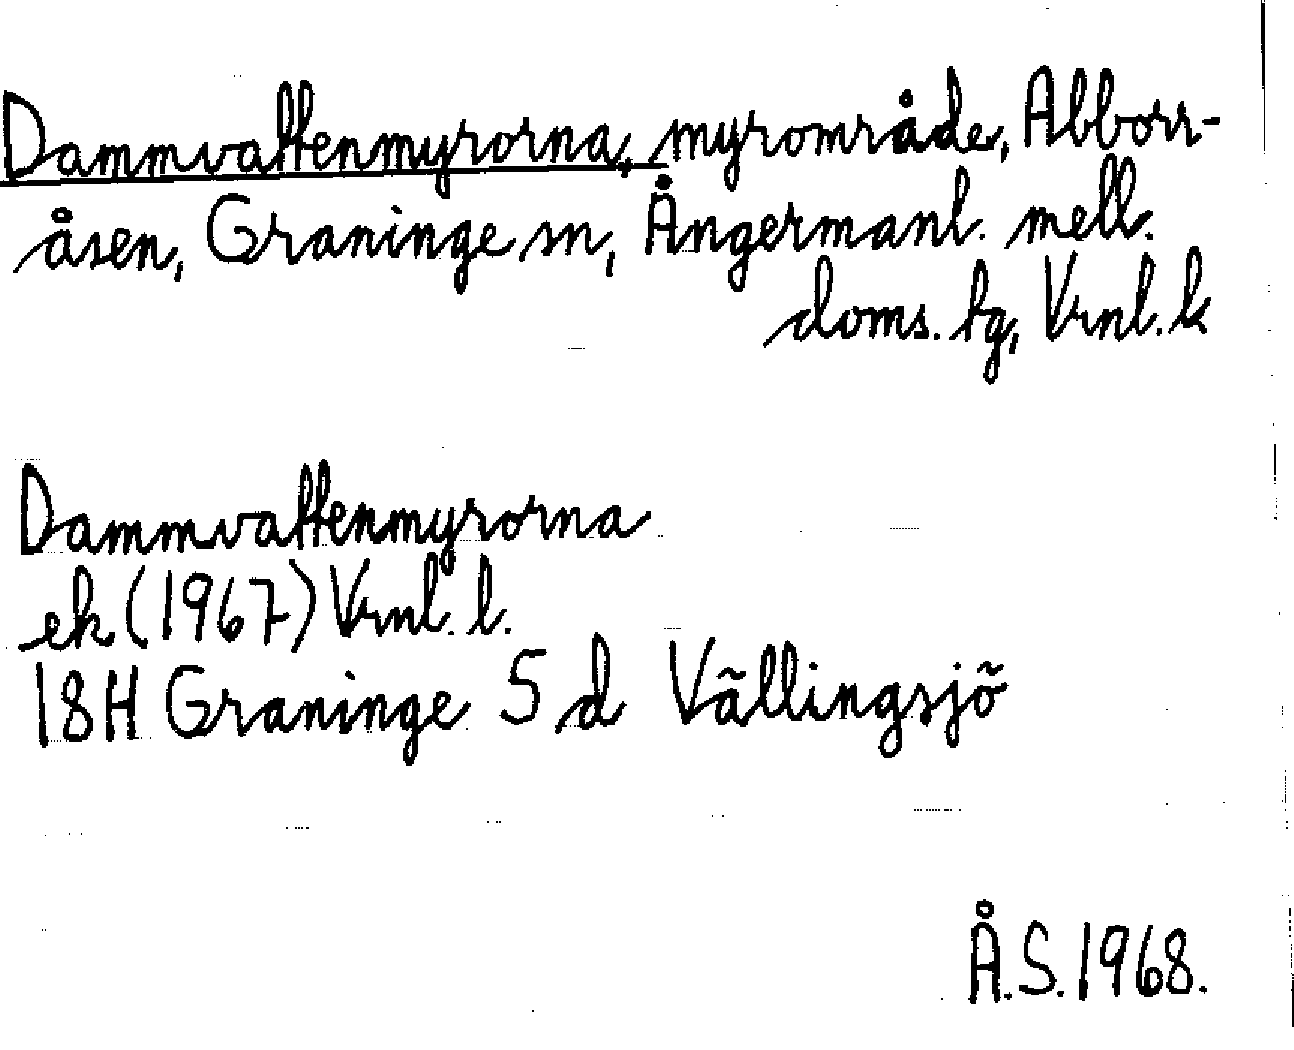 Dammvattenmyrorna, myrområde, Abborr-
åsen, Graninge sn, Ångermanl. mell.
doms. tg, Vrnl. k
Dammvattenmyrorna
ek (1967) Vrnl. l.
18H Graninge 5 d Vällingsjö
Å.S. 1968.